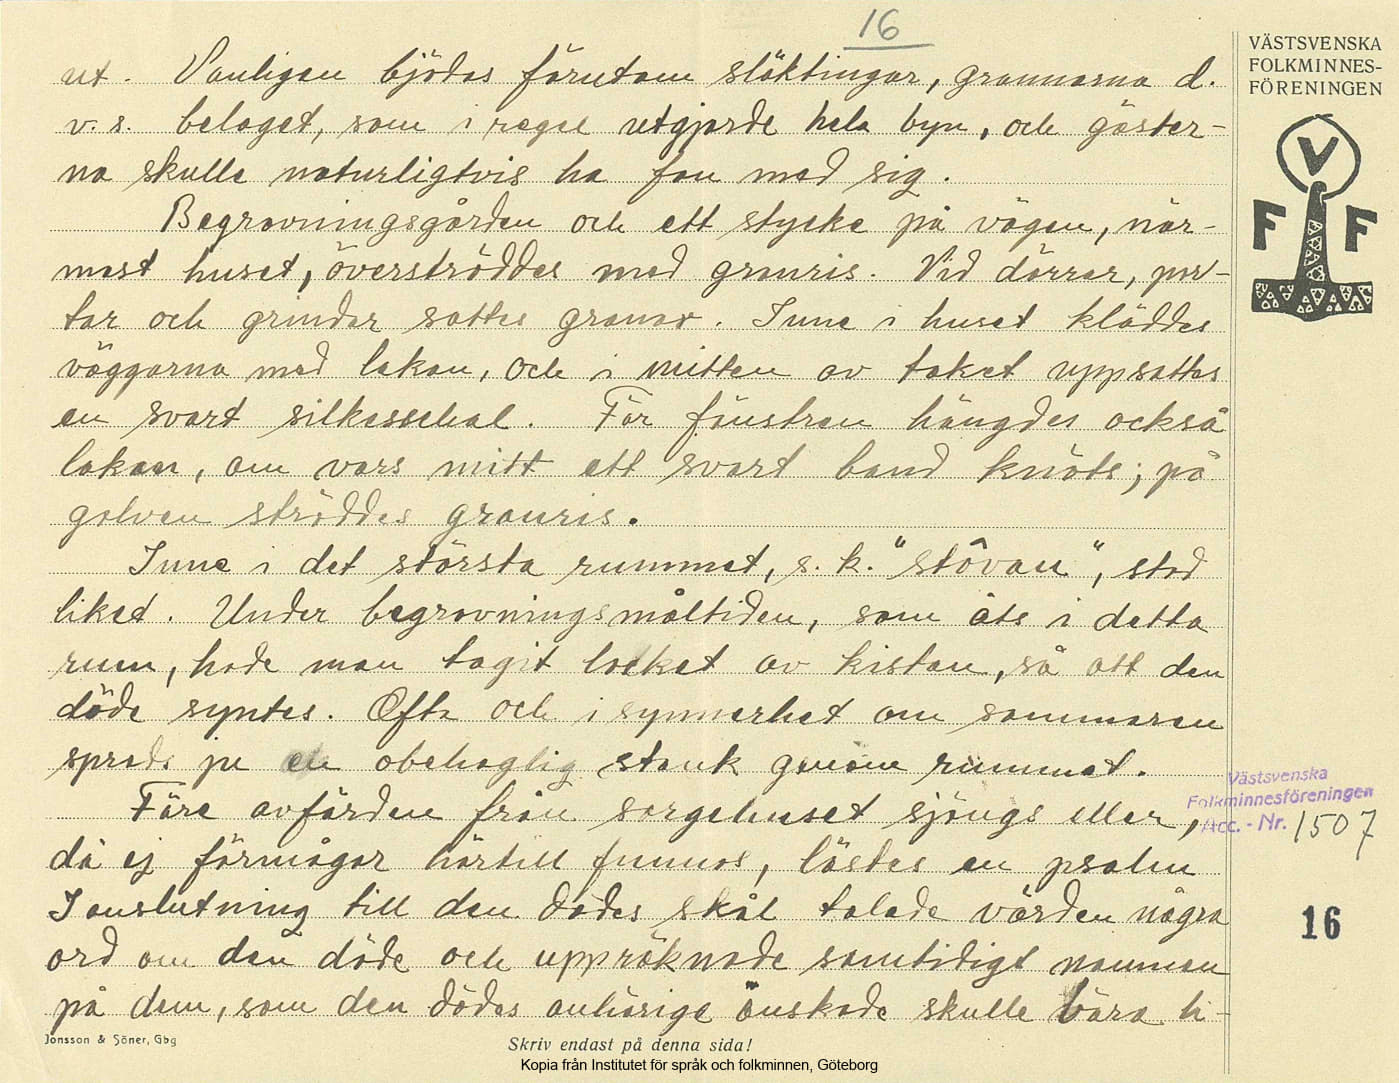 16
ut. Vanligen bjödos förutom släktingar, grannarna d.
v. s. belaget, som i regel utgjorde hela byn, och gäster-
na skulle naturligtvis ha fou med sig.
Begravningsgården och ett stycke på vägen, när-
mast huset, överströddes med granris. Vid dörrar, por-
tar och grindar sattes granar. Inne i huset kläddes
väggarna med lakan, och i mitten av taket uppsattes
en svart silkesschal. För fönstren hängdes också
lakan, om vars mitt ett svart band knöts; på
golven ströddes granris.
Inne i det största rummet, s. k. "stôvan", stod
liket. Under begravningsmåltiden, som åts i detta
rum, hade man tagit locket av kistan, så att den
döde syntes. Ofta och i synnerhet om sommaren
spreds ju en obehaglig stank genom rummet.
Före avfärden från sorgehuset sjöngs eller,
då ej förmågor härtill funnos, lästes en psalm
I anslutning till den dödes skål talade värden några
ord om den döde och uppräknade samtidigt namnen
på dem, som den dödes anhörige önskade skulle bära li-
Jonsson & Söner, Gbg
Skriv endast på denna sida!
Kopia från Institutet för språk och folkminnen, Göteborg
VÄSTSVENSKA
FOLKMINNES-
FÖRENINGEN
V
F F
Västsvenska
Folkminnesföreningen
Acc. - Nr. 1507
16